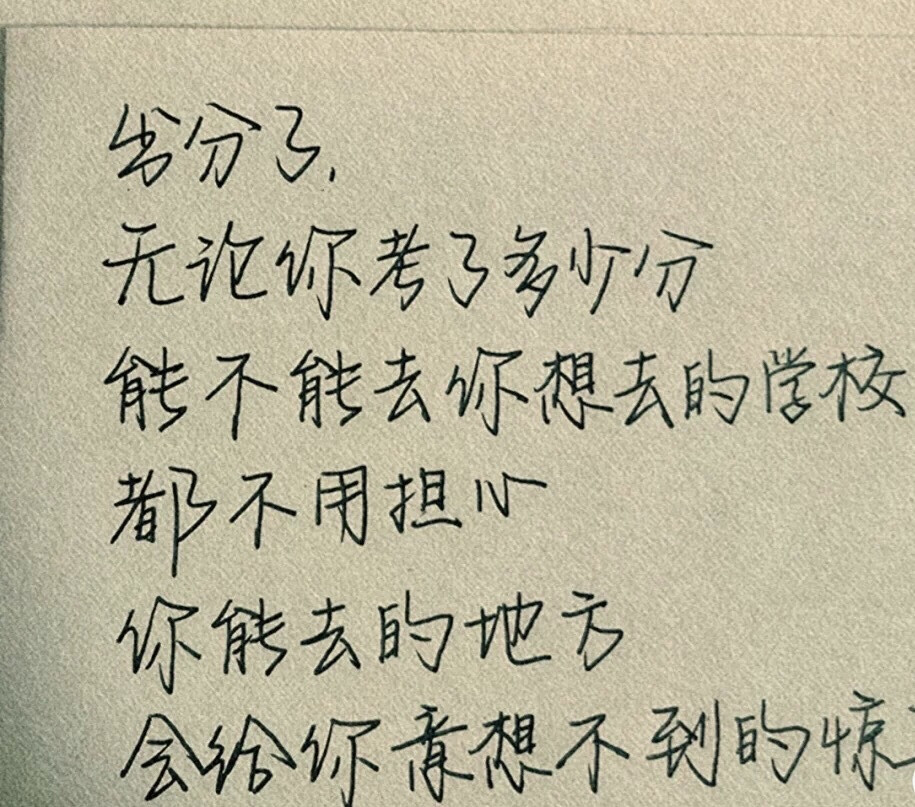 出分了,
无论你考了多少分
能不能去你想去的学校
都不用担心
你能去的地方
会给你意想不到的惊